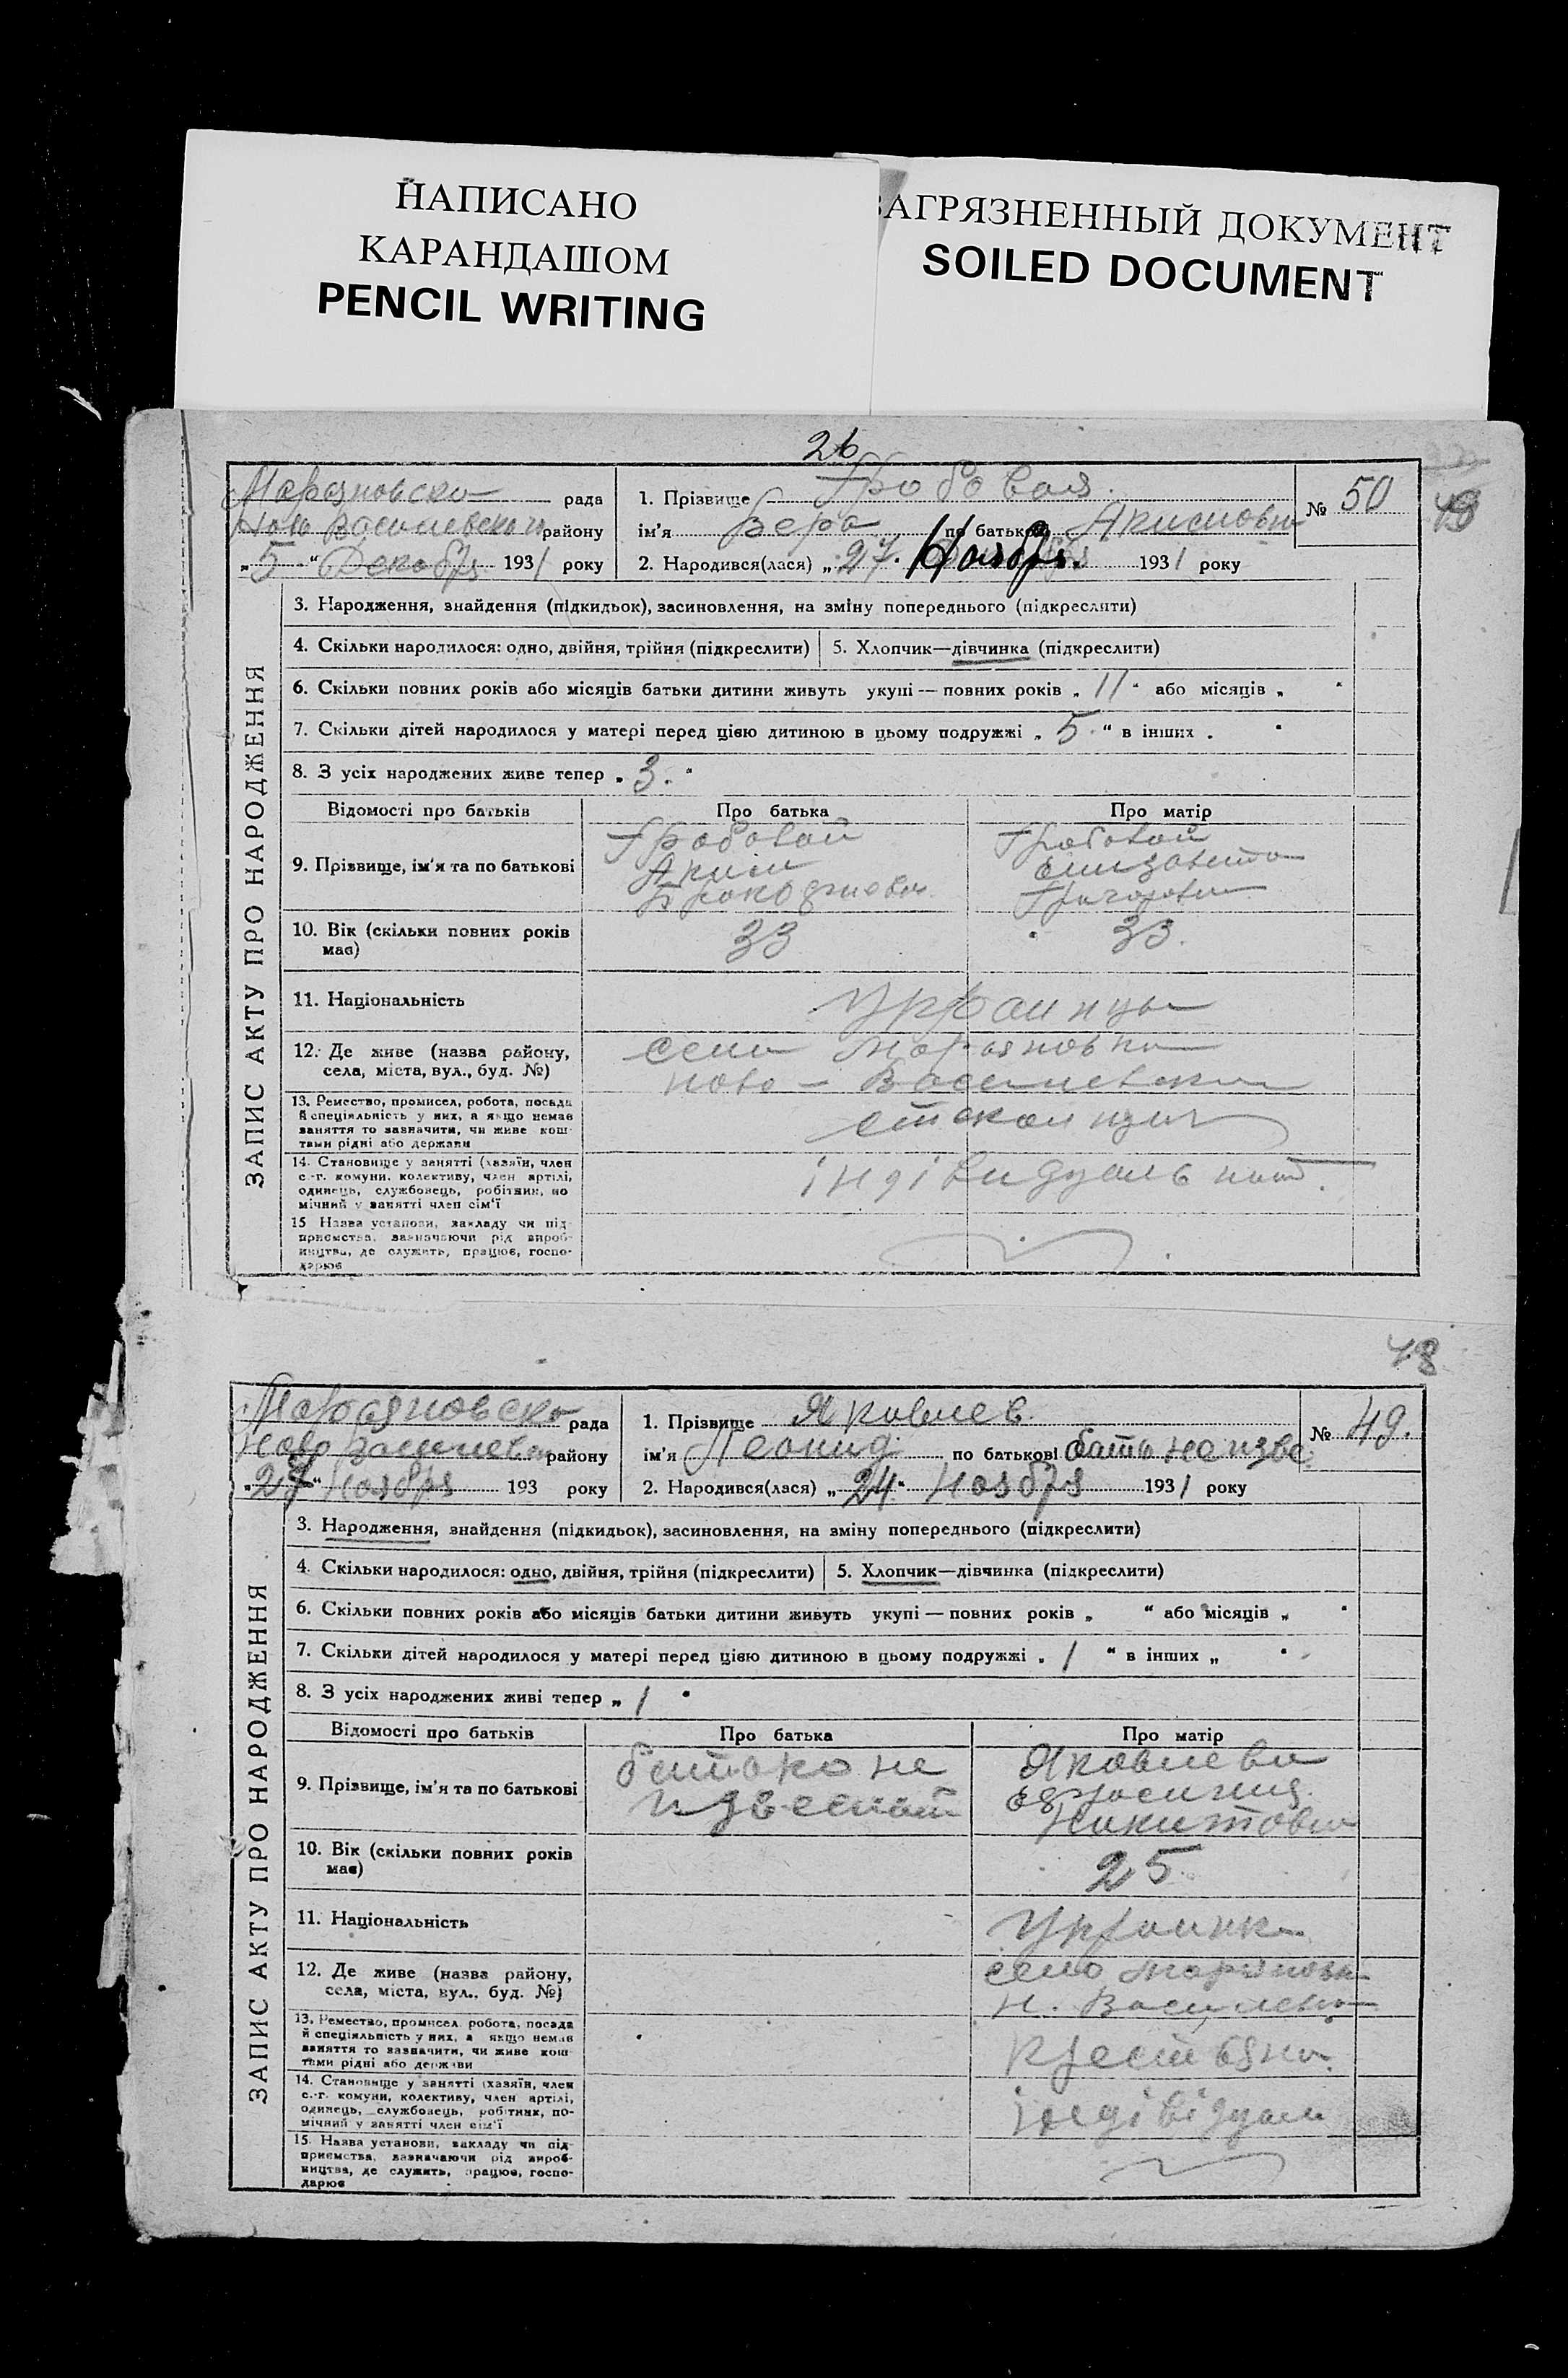 НАПИСАНО
КАРАНДАШОМ
PENCIL WRITING
ЗАГРЯЗНЕННЫЙ ДОКУМЕНТ
SOILED DOCUMENT
26
рада
району
„5“ Декабря 1931 року
1. Прізвище Гробовая
ім'я Вера по батькові Акимовн
2. Народився(лася) „27. Ноября. 1931 року
№ 50
49
ЗАПИС АКТУ ПРО НАРОДЖЕННЯ
3. Народження, знайдення (підкидьок), засиновлення, на зміну попереднього (підкреслити)
4. Скільки народилося: одно, двійня, трійня (підкреслити)
5. Хлопчик—дівчинка (підкреслити)
6. Скільки повних років або місяців батьки дитини живуть укупі — повних років „ 11 “ або місяців „ “
7. Скільки дітей народилося у матері перед цією дитиною в цьому подружжі „ 5 “ в інших „ “
8. З усіх народжених живе тепер „ 3. “
Відомості про батьків
Про батька
Про матір
9. Прізвище, ім'я та по батькові
Гробовой
Аким
Гробовой
Елизавета
10. Вік (скільки повних років
має)
33
33.
11. Національність
12. Де живе (назва району,
села, міста, вул., буд. №)
13. Ремество, промисел, робота, посада
й спеціяльність у них, а якщо немає
заняття то зазначити, чи живе кош-
тами рідні або держави
14. Становище у занятті (хазяїн, член
с.-г. комуни, колективу, член артілі,
одинець, службовець, робітник, по
мічний у занятті член сім'ї
15 Назва установи, закладу чи під-
приємства, зазначаючи рід вироб-
ництва, де служить, працює, госпо-
дарює
48
рада
району
„27“ Ноября 193 року
1. Прізвище Яковлев
ім'я Леонид по батькові бать не изве
2. Народився(лася) „24“ Ноября 1931 року
№ 49.
ЗАПИС АКТУ ПРО НАРОДЖЕННЯ
3. Народження, знайдення (підкидьок), засиновлення, на зміну попереднього (підкреслити)
4. Скільки народилося: одно, двійня, трійня (підкреслити)
5. Хлопчик—дівчинка (підкреслити)
6. Скільки повних років або місяців батьки дитини живуть укупі — повних років „ “ або місяців „ “
7. Скільки дітей народилося у матері перед цією дитиною в цьому подружжі „ 1 “ в інших „ “
8. З усіх народжених живі тепер „ 1 “
Відомості про батьків
Про батька
Про матір
9. Прізвище, ім'я та по батькові
не
Яковлева
Никитовна
10. Вік (скільки повних років
має)
25
11. Національність
12. Де живе (назва району,
села, міста, вул., буд. №)
село
13. Ремество, промисел, робота, посада
й спеціяльність у них, а якщо немає
заняття то зазначити, чи живе кош-
тами рідні або держави
14. Становище у занятті (хазяїн, член
с.-г. комуни, колективу, член артілі,
одинець, службовець, робітник, по-
мічний у занятті член сім'ї
15. Назва установи, закладу чи під-
приємства, зазначаючи рід вироб-
ництва, де служить, працює, госпо-
дарює